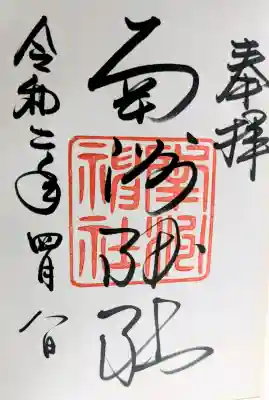 奉拝
南洲神社
南洲神社
令和二年四月八日